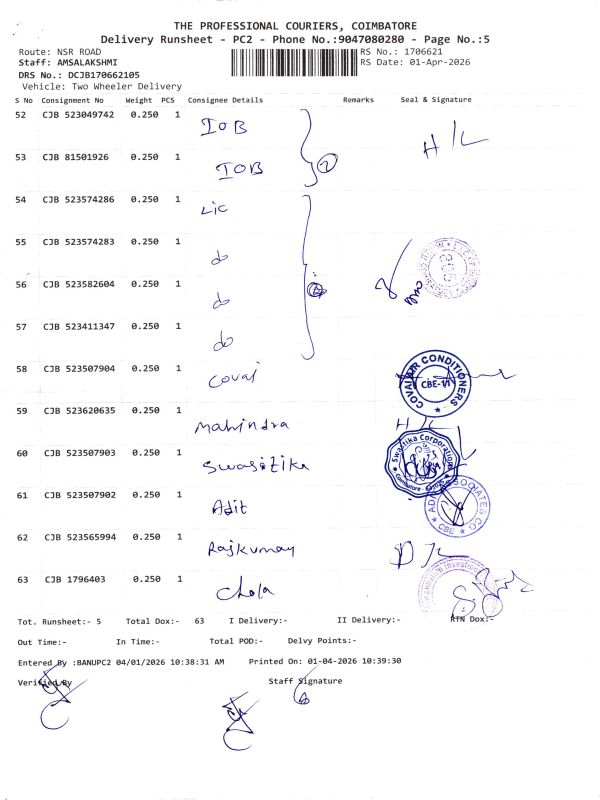 THE PROFESSIONAL COURIERS, COIMBATORE
Delivery Runsheet - PC2 - Phone No.:9047080280 - Page No.:5
Route: NSR ROAD RS No.: 1706621
Staff: AMSALAKSHMI RS Date: 01-Apr-2026
DRS No.: DCJB170662105
Vehicle: Two Wheeler Delivery
S No Consignment No Weight PCS Consignee Details Remarks Seal & Signature
52 CJB 523049742 0.250 1 IOB H/L
53 CJB 81501926 0.250 1 IOB 2
54 CJB 523574286 0.250 1 Lic
55 CJB 523574283 0.250 1 do
56 CJB 523582604 0.250 1 do
57 CJB 523411347 0.250 1 do
58 CJB 523507904 0.250 1 Covai COVAI AIR CONDITIONERS CBE-1/1
59 CJB 523620635 0.250 1 Mahindra H/L
60 CJB 523507903 0.250 1 Swastika Swastika Corporation Coimbatore
61 CJB 523507902 0.250 1 Adit ASSOCIATES CO CBE
62 CJB 523565994 0.250 1 Rajkumar
63 CJB 1796403 0.250 1 Chola
Tot. Runsheet:- 5 Total Dox:- 63 I Delivery:- II Delivery:- RTN Dox:-
Out Time:- In Time:- Total POD:- Delvy Points:-
Entered By :BANUPC2 04/01/2026 10:38:31 AM Printed On: 01-04-2026 10:39:30
Verified By Staff Signature